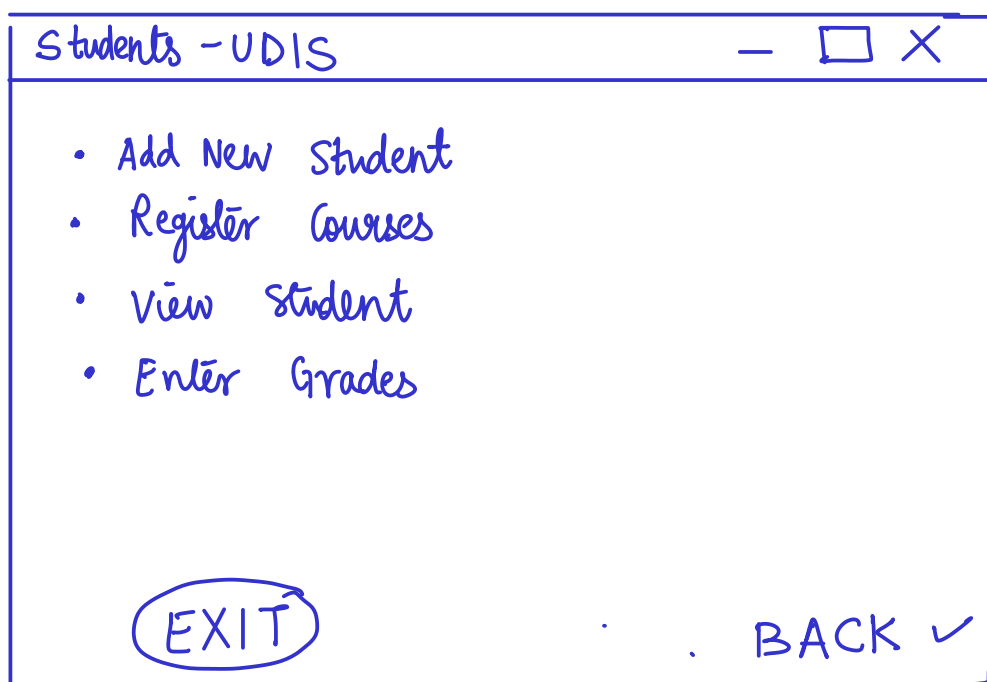 Students - UDIS
• Add New Student
• Register Courses
• View Student
• Enter Grades
EXIT
BACK ✓